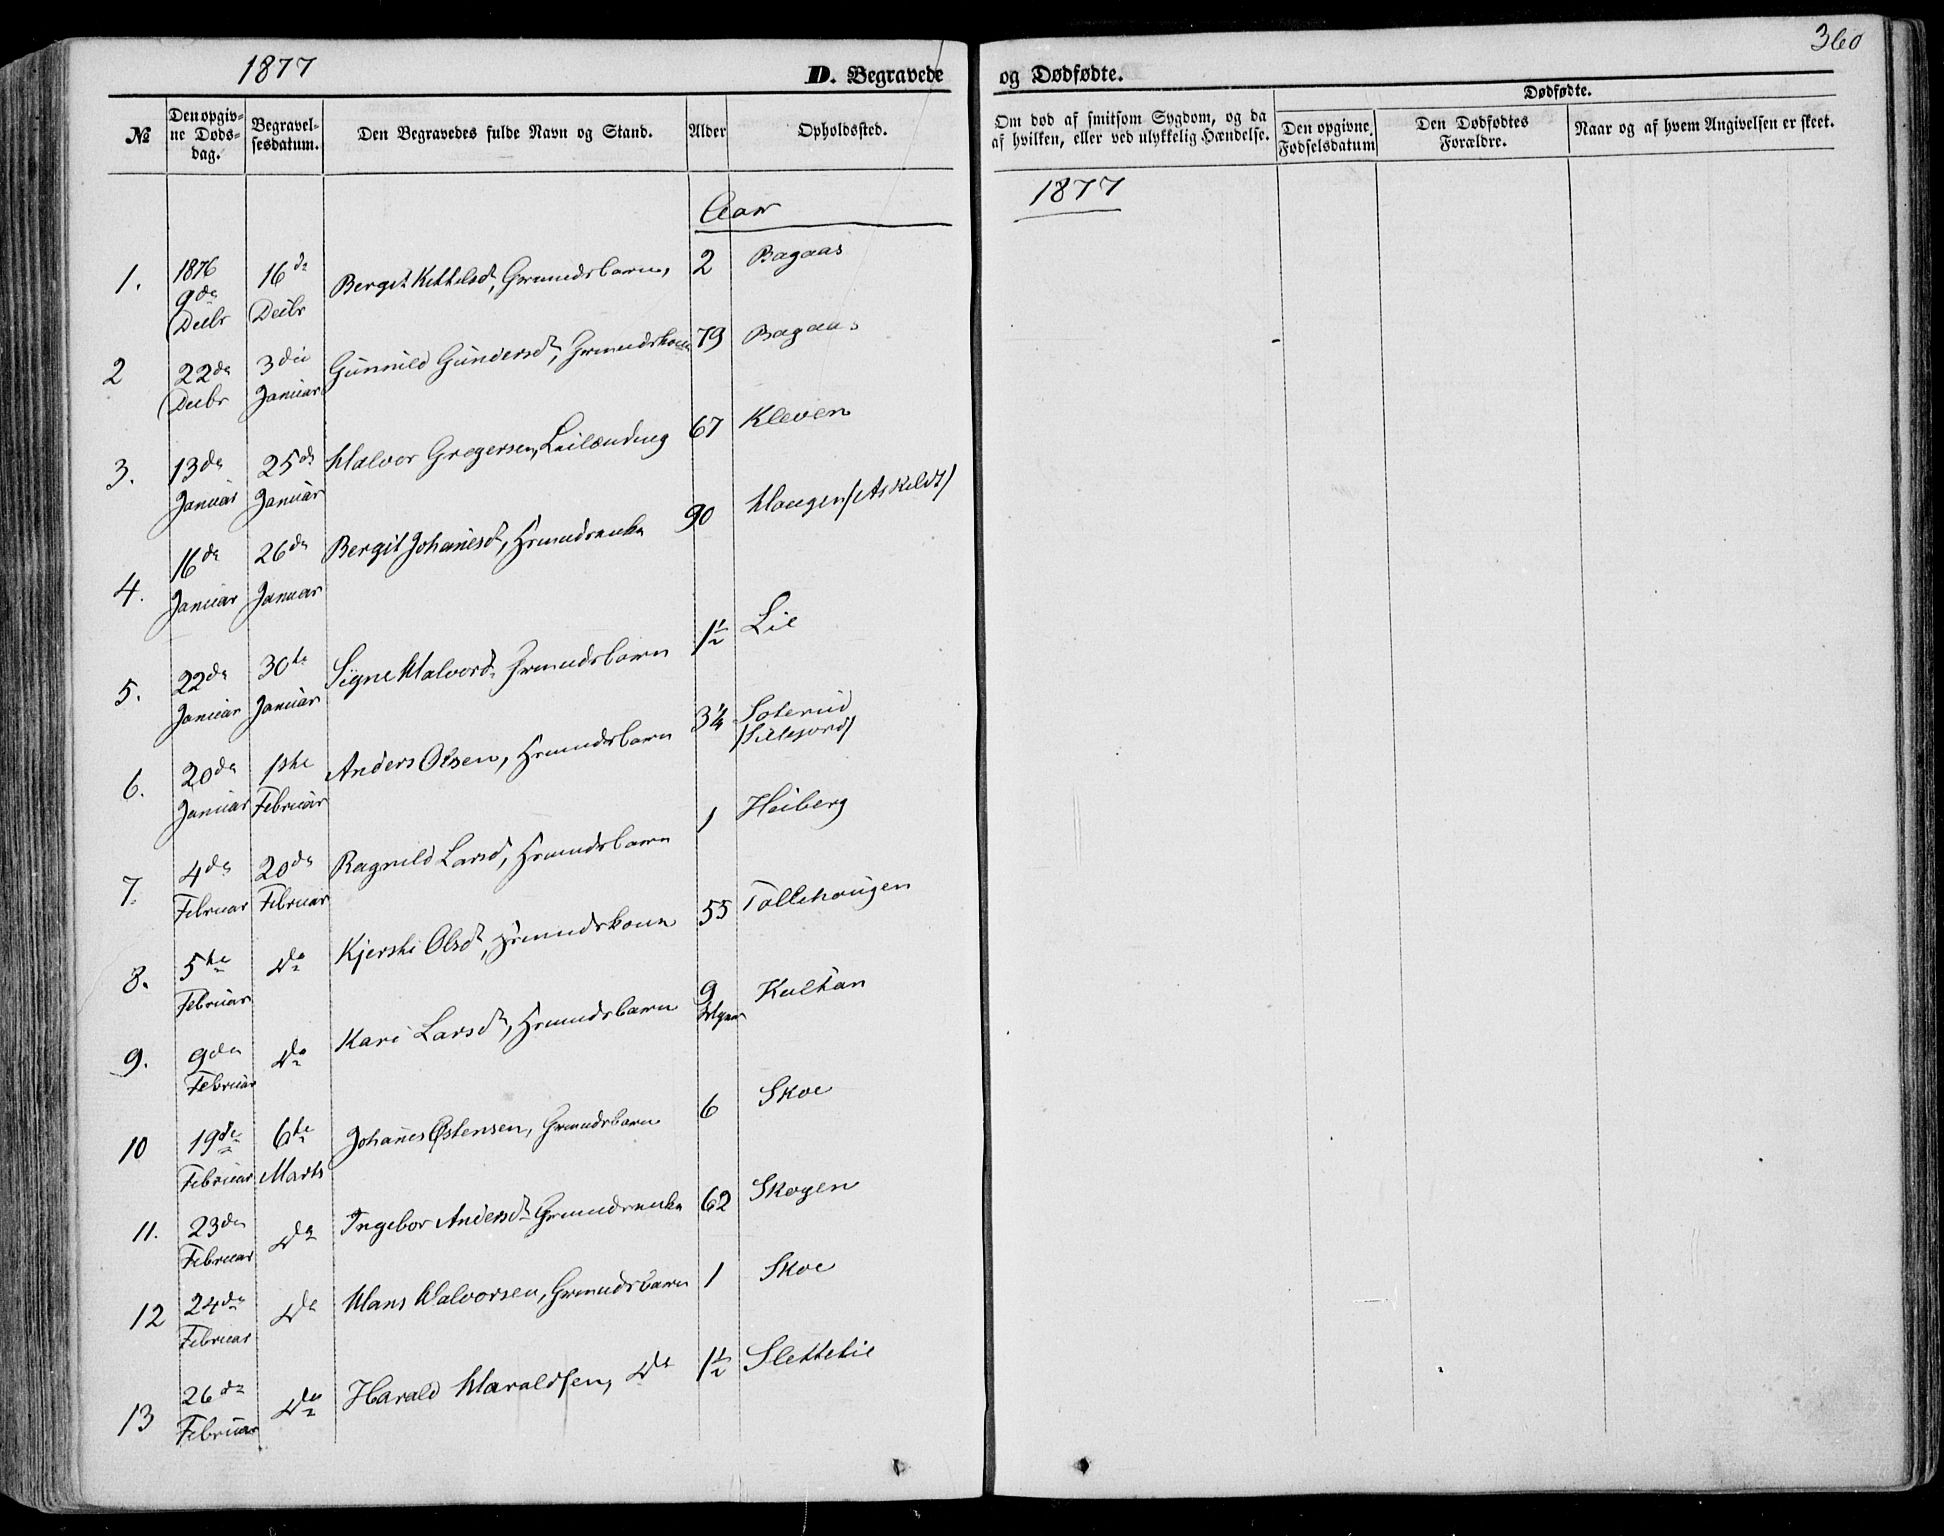 1877
D. Begravede
og Dødfødte.
360
№
Den opgiv-
ne Døds-
dag.
Begravel-
sesdatum.
Den Begravedes fulde Navn og Stand.
Alder
Opholdssted.
Om død af smitsom Sygdom, og da
af hvilken, eller ved ulykkelig Hændelse.
Dødfødte.
Den opgivne
Fødselsdatum
Den Dødfødtes
Forældre.
Naar og af hvem Angivelsen er skeet.
1877
Aar
1. 1876 9de Decbr 16de Decbr Bergit Kittilsd, Grmandsbarn, 2 Bagaas
2 22de Decbr 3die Januar Gunnild Gundersd, Grmandskone 79 Bagaas
3. 13de Januar 25de Januar Halvor Gregersen, Leilænding 67 Kleven
4. 16de Januar 26de Januar Bergit Johanesd, Hrmandsenke 90 Haugen /Askildt/
5. 22de Januar 30te Januar Signe Halvord. Grmandsbarn 1½ Lie
6. 20de Januar 1ste Februar Anders Olsen, Hrmandsbarn 3¼ Soterud /Sillejord/
7. 4de Februar 20de Februar Ragnild Larsd, Hrmandsbarn 1 Heiberg
8. 5te Februar do Kjersti Olsd, Hrmandskone 55 Tollehougen
9. 9de Februar do Kari Larsd, Hrmandsbarn 9 Kultan
10 19de Februar 6te Marts Johanes Østensen, Grmandsbarn 6 Skoe
11. 23de Februar do Ingebor Andersd Grmandsenke 62 Skogen
12 24de Februar do Hans Halvorsen, Grmandsbarn 1 Skoe
13 26de Februar do Harald Haraldsen, do 1½ Slettelie